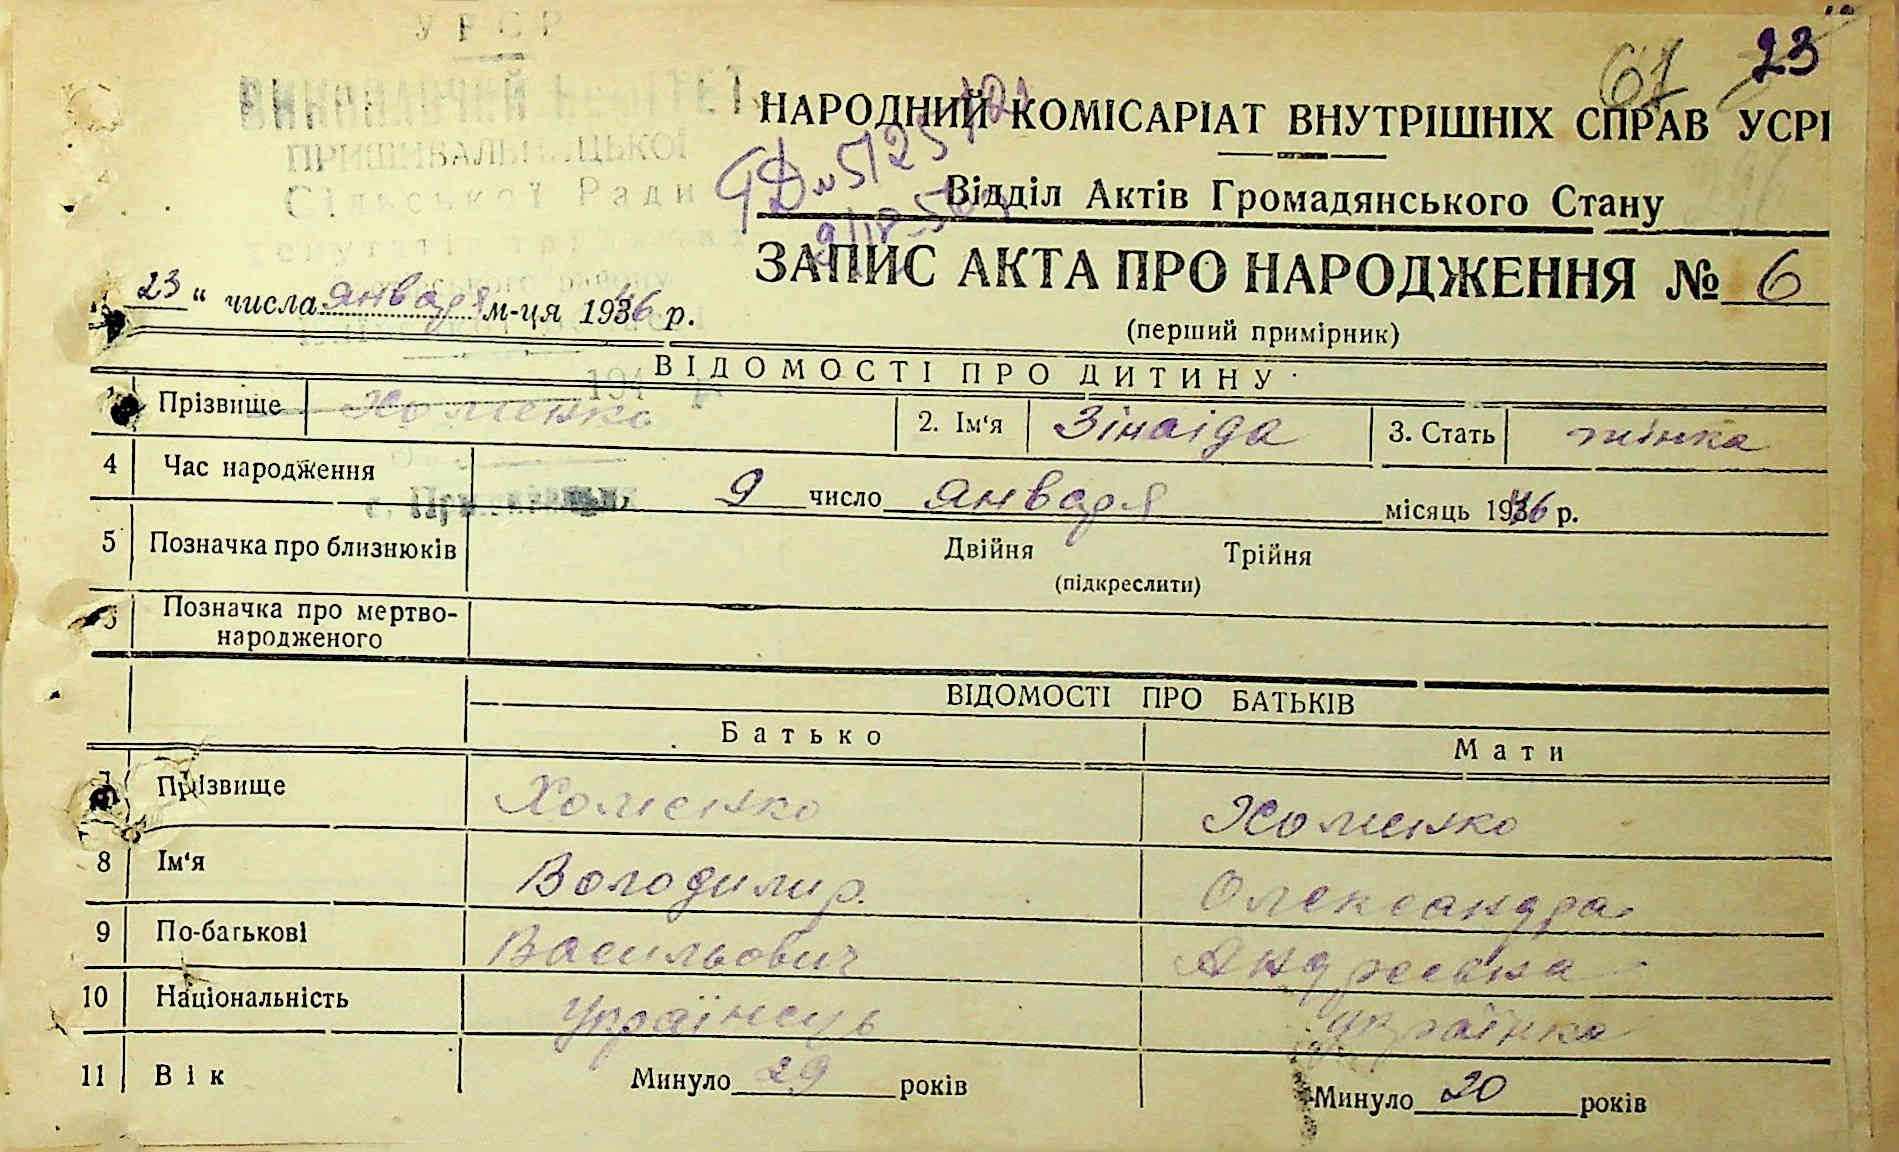 УРСР
67 23
ВИКОНАВЧИЙ КОМІТЕТ
НАРОДНИЙ КОМІСАРІАТ ВНУТРІШНІХ СПРАВ УСРР
ПРИШИВАЛЬНИЦЬКОЇ
Сільської Ради
Відділ Актів Громадянського Стану
депутатів трудящих
ЗАПИС АКТА ПРО НАРОДЖЕННЯ № 6
(перший примірник)
23 " числа января м-ця 1946 р.
194
ВІДОМОСТІ ПРО ДИТИНУ
1 Прізвище Хоменко 2. Ім'я Зінаіда 3. Стать жінка
4 Час народження 9 число января місяць 1946 р.
5 Позначка про близнюків Двійня Трійня
(підкреслити)
6 Позначка про мертво-
народженого
ВІДОМОСТІ ПРО БАТЬКІВ
Батько Мати
7 Прізвище Хоменко Хоменко
8 Ім'я Володимир. Олександра
9 По-батькові Васильович Андреевна
10 Національність Українець українка
11 Вік Минуло 29 років Минуло 20 років